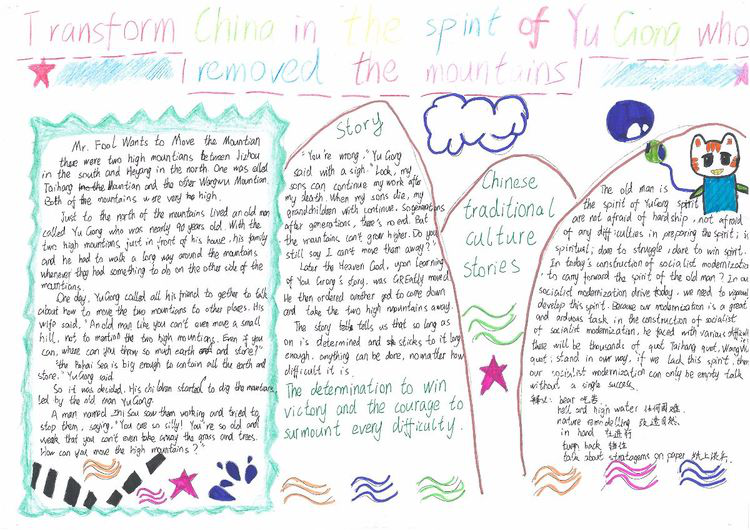 Transform China in the spirit of Yu Gong who
removed the mountains
Mr. Fool Wants to Move the Mountian
there were two high mountians between Jizhou
in the south and Heyang in the north. One was called
Taihang Mountian and the other Wangwu Mountian.
Both of the mountains were very high.
Just to the north of the mountains lived an old man
called Yu Gong who was nearly 90 years old. With the
two high mountians, just in front of his house, his family
and he had to walk a long way around the mountains
whenever they had something to do on the other side of the
mountians.
One day, YuGong called all his friend to gether to talk
about how to move the two mountians to other places. His
wife said. "An old man like you can't even move a small
hill, not to mention the two high mountians. Even if you
can, where can you throw so much earth and stone?"
"the Bohai Sea is big enough to contain all the earth and
stone." YuGong said
So it was decided. His children started to dig the mountians
led by the old man YuGong.
A man named Zhi Sou saw them working and tried to
stop them, saying, "You are so silly! You're so old and
weak that you can't even take away the grass and trees.
How can you move the high mountians?"
Story
"You're wrong." Yu Gong
said with a sigh." Look, my
sons can continue my work after
my death. When my sons die, my
grandchildren with continue. So generations
after generations, there's no end. But
the mountains can't grow higher. Do you
still say I can't move them away?"
Later the Heaven God, upon learning
of You Gong's story, was GREatly moved
He then ordered another god to come down
and take the two high mountains away.
The story tells us that so long as
on is determined and sticks to it long
enough. anything can be done, nomatter how
difficult it is.
The determination to win
victory and the courage to
surmount every difficulty.
Chinese
traditional
culture
stories
The old man is
the spirit of YuGong spirit
are not afraid of hardship, not afraid
of any difficulties in preparing the spirit; is
spiritual; dare to struggle, dare to win spirit.
In today's construction of socialist modernization
to carry forward the spirit of the old man? In our
socialist modernization drive today, we need to vigorous
develop this spirit. Because our modernization is a great
and arduous task, in the construction of socialist
of socialist modernization, be faced with various difficul
there will be thousands of quot Taihang quot, WangWu
quot; stand in our way, if we lack this spirit, then
our socialist modernization can only be empty talk
without a single success.
bear 吃苦
hell and high water 任何困难.
nature remodelling 改造自然.
in hand 在进行
turn back 挡住
talk about stratagems on paper 纸上谈兵